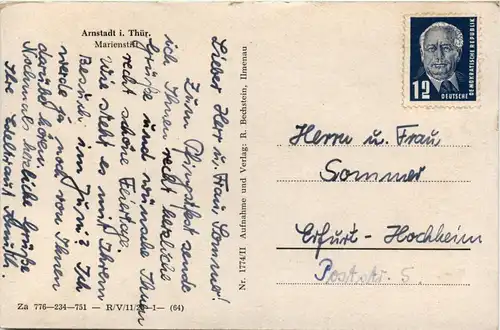 Arnstadt i. Thür.
Marienstift
Lieber Herr u. Frau Sommer!
Zum Pfingstfest sende
ich Ihnen recht herzliche
Grüße und wünsche Ihnen
recht schöne Feiertage.
Wie steht es mit Ihrem
Besuch im Juni? Ich
werde ja noch von Ihnen
darüber hören.
Nochmals herzliche Grüße
Ihre Edeltraut
Nr. 1774/II Aufnahme und Verlag: R. Bechstein, Ilmenau
12
DEUTSCHE
DEMOKRATISCHE REPUBLIK
Herrn u. Frau
Sommer
Erfurt-Hochheim
Poststr. 5.
Za 776—234—751 — R/V/11/28—I— (64)